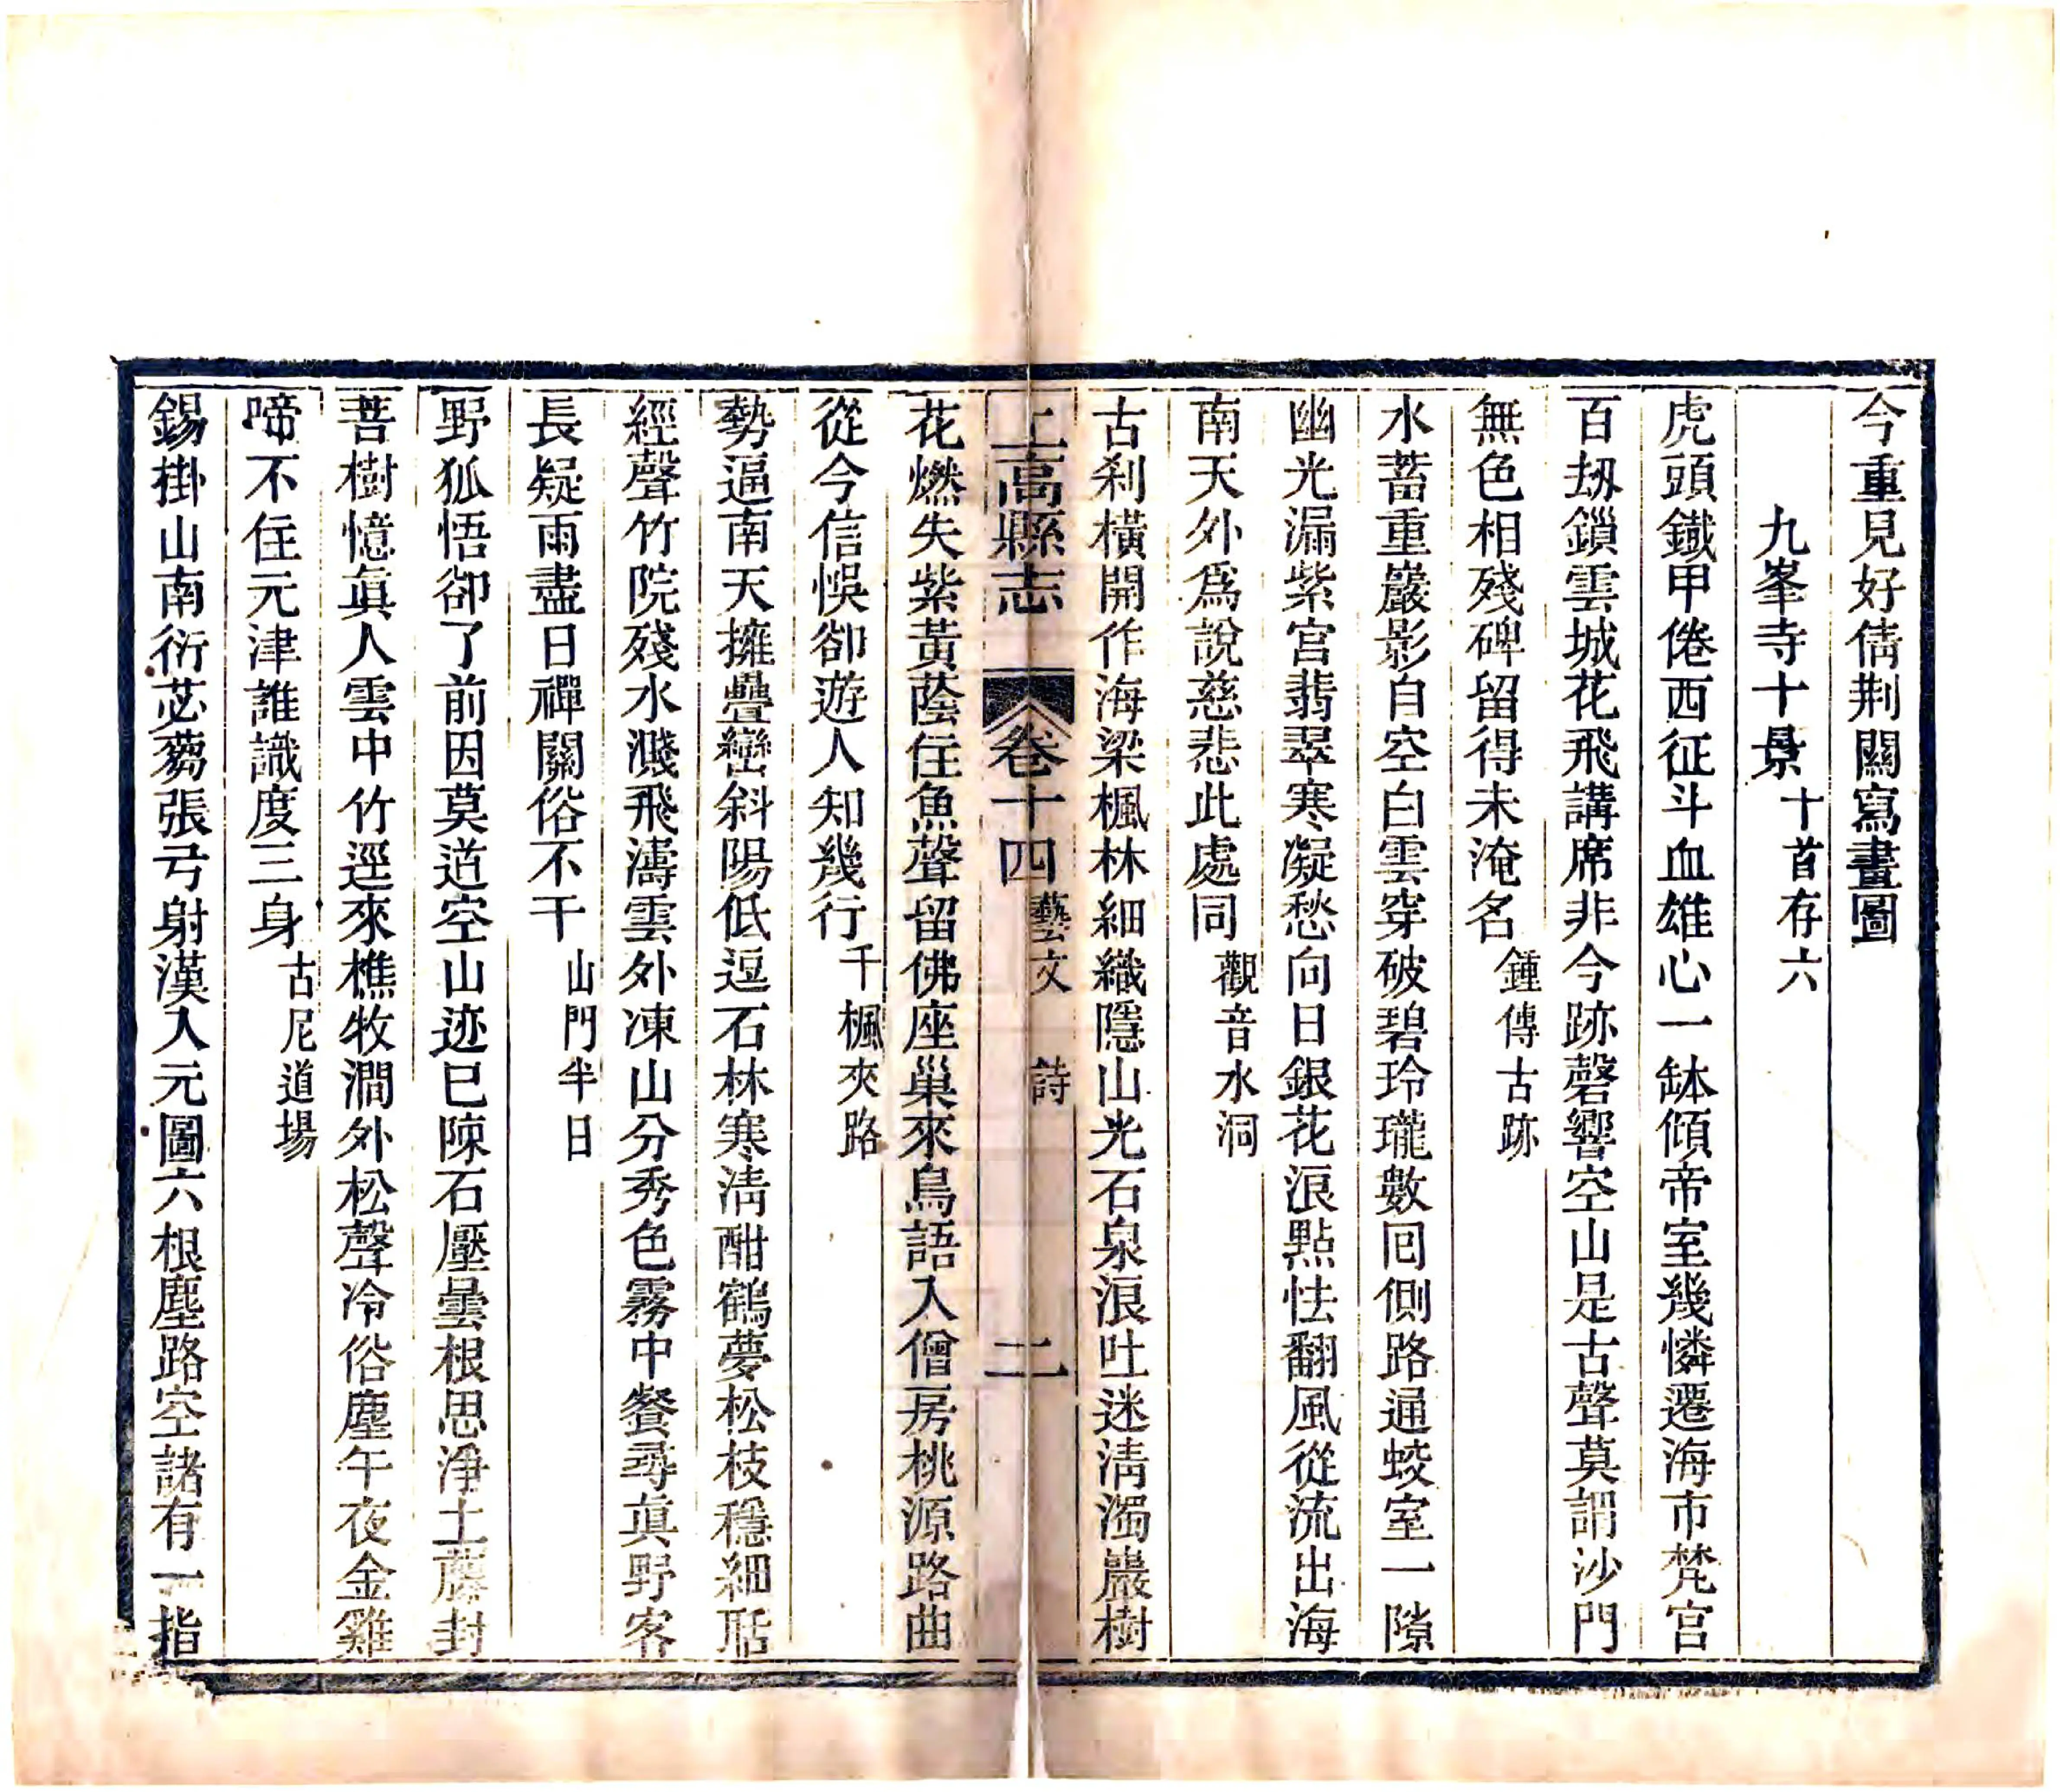 今重見好倩荆關寫畫圖
九峯寺十景十首存六
虎頭鐵甲倦西征斗血雄心一缽傾帝室幾憐遷海市梵宫
百刼鎖雲城花飛講席非今跡磬響空山是古聲莫謂沙門
無色相殘碑留得未淹名鍾傳古跡
水蓄重巖影自空白雲穿破碧玲瓏數囘側路通蛟室一隙
幽光漏紫宫翡翠寒凝愁向日銀花浪點怯翻風從流出海
南天外爲說慈悲此處同觀音水洞
古刹橫開作海梁楓林細織隱山光石泉浪吐迷淸濁巖樹
上高縣志 卷十四 藝文 詩 二
花燃失紫黃蔭住魚聲留佛座巢來鳥語入僧房桃源路曲
從今信悞卻遊人知幾行千楓夾路
勢逼南天擁疊巒斜陽低逗石林寒淸酣鶴夢松枝穩細聒
經聲竹院殘水濺飛濤雲外凍山分秀色霧中餐尋眞野客
長疑雨盡日禪關俗不干山門半日
野狐悟卻了前因莫道空山迹已陳石壓曇根思淨土藤封
菩樹憶眞人雲中竹逕來樵牧澗外松聲冷俗塵午夜金雞
啼不住元津誰識度三身古尼道場
錫掛山南衍苾蒭張弓射漢入元圖六根塵路空諸有一指